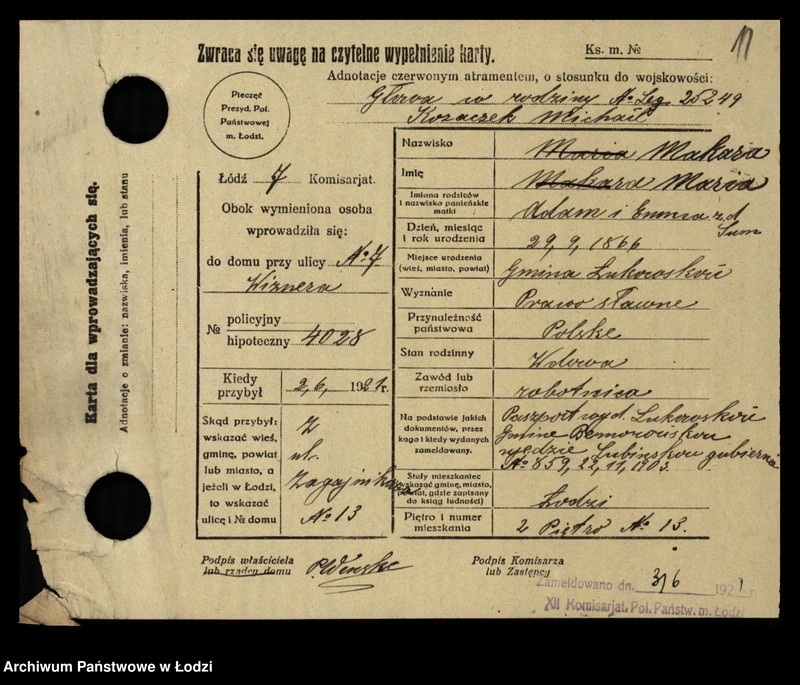 Zwraca się uwagę na czytelne wypełnienie karty.
Ks. m. №
11
Adnotacje czerwonym atramentem, o stosunku do wojskowości:
Głowa w rodziny № Leg 25249
Kozaczek Michail
Pieczęć
Prezyd. Pol.
Państwowej
m. Łodzi.
Karta dla wprowadzających się.
Adnotacje o zmianie: nazwiska, imienia, lub stanu
Łódź 7 Komisarjat.
Obok wymieniona osoba
wprowadziła się:
do domu przy ulicy № 7
Wiznera
№ policyjny
hipoteczny 4028
Kiedy przybył 2,6, 1921 r.
Skąd przybył:
wskazać wieś,
gminę, powiat
lub miasto, a
jeżeli w Łodzi,
to wskazać
ulicę i № domu
Z
ul.
Zagajnikowa
№ 13
Nazwisko Maria Makara
Imię Makara Maria
Imiona rodziców
i nazwisko panieńskie
matki
Adam i Emma z d.
Sum
Dzień, miesiąc
i rok urodzenia
29, 9, 1866
Miejsce urodzenia
(wieś, miasto, powiat)
Gmina
Wyznanie Prawo sławne
Przynależność
państwowa
Polske
Stan rodzinny Wdowa
Zawód lub
rzemiosło
robotnica
Na podstawie jakich
dokumentów, przez
kogo i kiedy wydanych
zameldowany.
Paszport wyd.
Gmine
gubiernia
№ 859, 22, 11, 1903.
Stały mieszkaniec
wskazać gminę, miasto,
powiat, gdzie zapisany
do ksiąg ludności)
Łodzi
Piętro i numer
mieszkania
2 Piętro № 13.
Podpis właściciela
lub rządcy domu
Podpis Komisarza
lub Zastępcy
Zameldowano dn. 3/6 1921
XII Komisarjat. Pol. Państw. m. Łodzi
Archiwum Państwowe w Łodzi